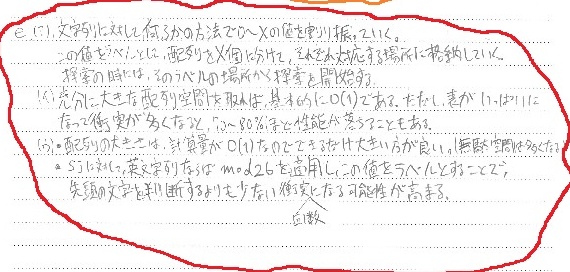 e (に) 文字列に対して何らかの方法で0〜Xの値を割り振っていく。
この値をラベルとして、配列をX個に分けて、それぞれ対応する場所に格納していく。
探索の時には、そのラベルの場所から探索を開始する。
(ii) 充分に大きな配列空間を取れば、基本的にO(1)である。ただし、表がいっぱいに
なって衝突が多くなると、70〜80%ほど性能が落ちることもある。
(iii)・配列の大きさは、計算量がO(1)なのでできるだけ大きい方が良い。(無駄な空間は多くなる)
・Sjに対して、英文字列ならば mod26を適用し、この値をラベルとすることで、
先頭の文字を判断するよりも少ない衝突になる可能性が高まる。
回数